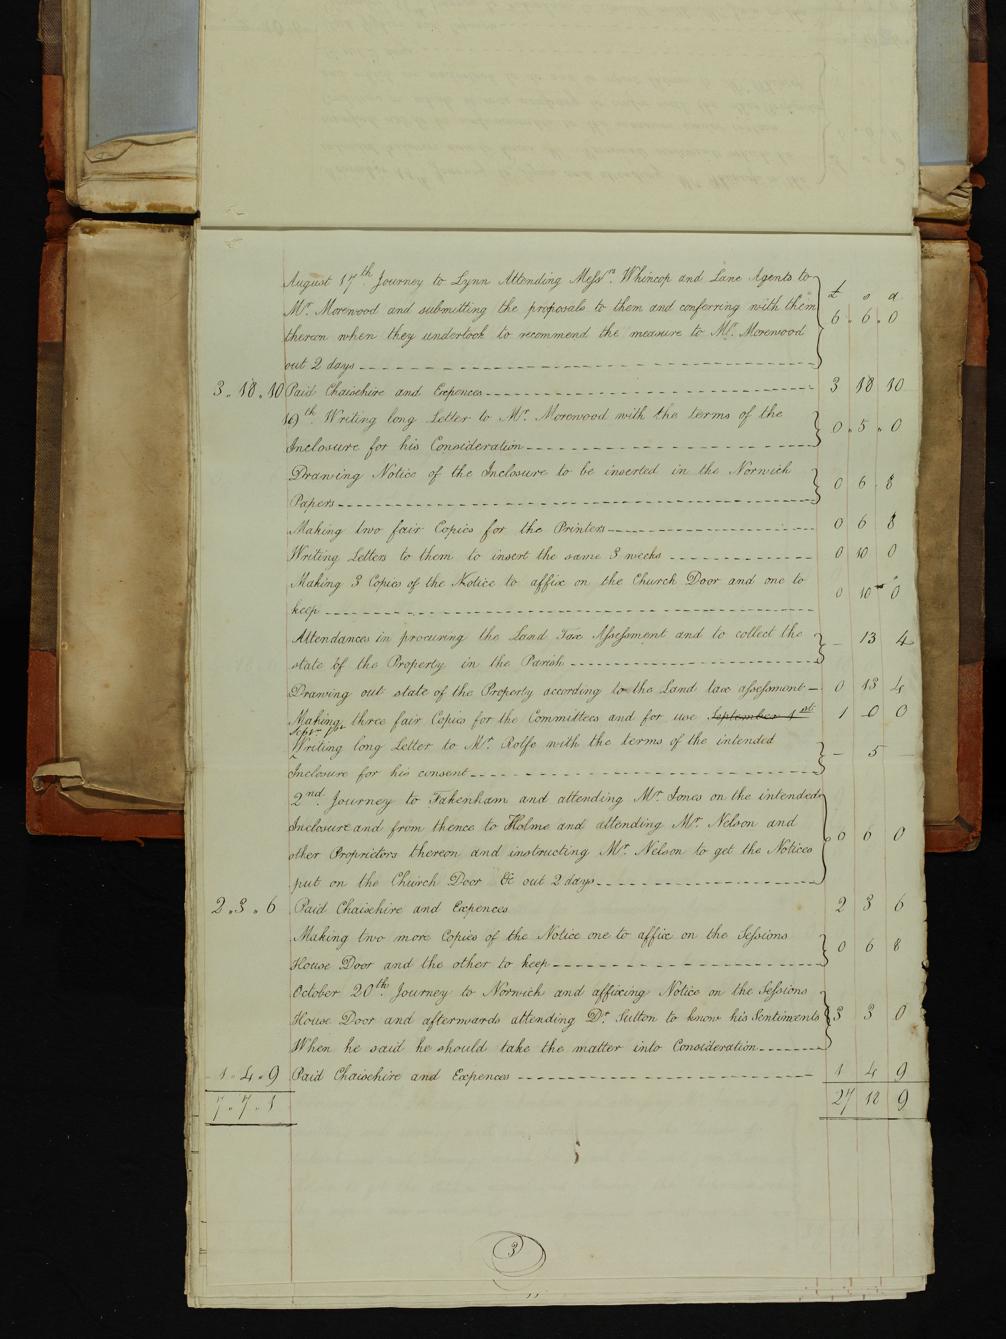 August 17th Journey to Lynn Attending Messrs. Whincop and Lane Agents to
£ s d
Mr. Morewood and submitting the proposals to them and conferring with them 6 . 6 . 0
thereon when they undertook to recommend the measure to Mr. Morewood
out 2 days
3 . 18 . 10 Paid Chaisehire and Expences 3 18 10
19th. Writing long Letter to Mr. Morewood with the terms of the 0 . 5 . 0
Inclosure for his Consideration
Drawing Notice of the Inclosure to be inserted in the Norwich 0 6 . 8
Papers
Making two fair Copies for the Printers 0 6 8
Writing Letters to them to insert the same 3 weeks 0 10 0
Making 3 Copies of the Notice to affix on the Church Door and one to 0 10 0
keep
Attendances in procuring the Land Tax Assessment and to collect the - 13 4
state of the Property in the Parish
Drawing out state of the Property according to the Land tax assessment 0 13 4
Making three fair Copies for the Committees and for use September 1st. 1 0 0
Septr. 1st
Writing long Letter to Mr. Rolfe with the terms of the intended - 5
Inclosure for his consent
2nd. Journey to Fakenham and attending Mr. Jones on the intended
Inclosure and from thence to Holme and attending Mr. Nelson and 6 6 0
other Proprietors thereon and instructing Mr. Nelson to get the Notices
put on the Church Door &c out 2 days
2 . 3 . 6 Paid Chaisehire and Expences 2 3 6
Making two more Copies of the Notice one to affix on the Sessions 0 6 8
House Door and the other to keep
October 20th. Journey to Norwich and affixing Notice on the Sessions
House Door and afterwards attending Dr. Sutton to know his Sentiments 3 3 0
When he said he should take the matter into Consideration
1 . 4 . 9 Paid Chaisehire and Expences 1 4 9
7 . 7 . 1 27 18 9
3